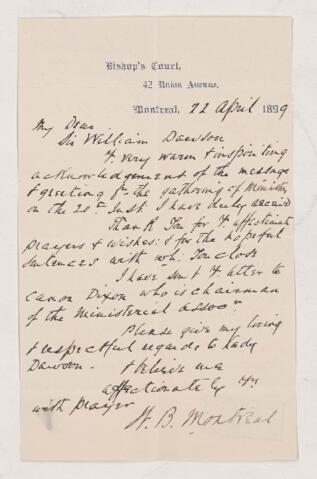 Bishop's Court,
42 Union Avenue.
Montreal, 22 April 1899
My Dear
Sir William Dawson
Yr very warm & inspiriting
acknowledgement of the message
& greeting from the gathering of Ministers
on the 20th Inst I have duly received
Thank You for Yr affectionate
prayers & wishes: & for the hopeful
sentences with wh. You close
I have sent Yr letter to
Canon Dixon who is chairman
of the Ministerial Assocn.
Please give my loving
& respectful regards to Lady
Dawson. & believe me
affectionately Yrs
with prayer
W. B. Montreal